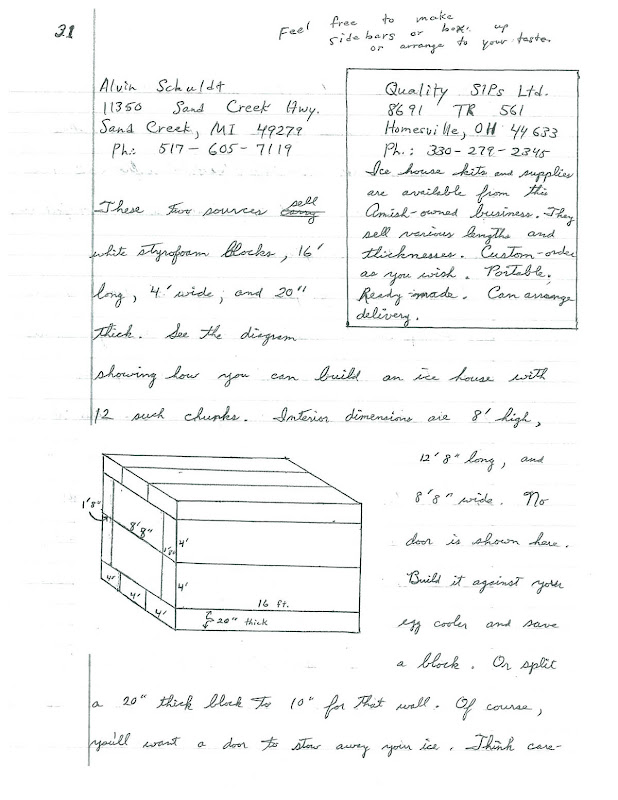 21
Feel free to make
side bars or box up
or arrange to your taste.
Alvin Schuldt
11350 Sand Creek Hwy.
Sand Creek, MI 49279
Ph: 517-605-7119
Quality SIPs Ltd.
8691 TR 561
Homesville, OH 44633
Ph.: 330-279-2345
Ice house kits and supplies
are available from this
Amish-owned business. They
sell various lengths and
thicknesses. Custom-order
as you wish. Portable.
Ready-made. Can arrange
delivery.
These two sources sell
white styrofoam blocks, 16'
long, 4' wide, and 20"
thick. See the diagram
showing how you can build an ice house with
12 such chunks. Interior dimensions are 8' high,
12'8" long, and
8'8" wide. No
door is shown here.
Build it against your
egg cooler and save
a block. Or split
a 20" thick block to 10" for that wall. Of course,
you'll want a door to stow away your ice. Think care-
1'8"
8'8"
1'8"
4'
4'
4'
4'
4'
16 ft.
20" thick